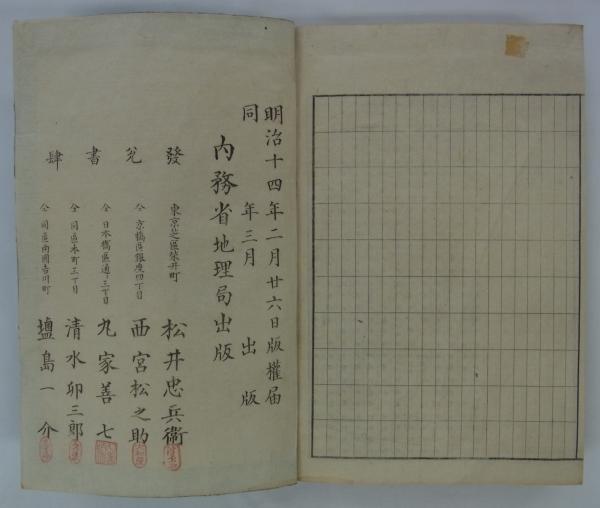 明治十四年二月廿六日版權届
同 年三月 出版
内務省地理局出版
發兌書肆
東京芝區柴井町 松井忠兵衛
仝 京橋區銀座四丁目 西宮松之助
仝 日本橋區通三丁目 丸家善七
仝 同區本町三丁目 清水卯三郎
仝 同區両國吉川町 壚島一介